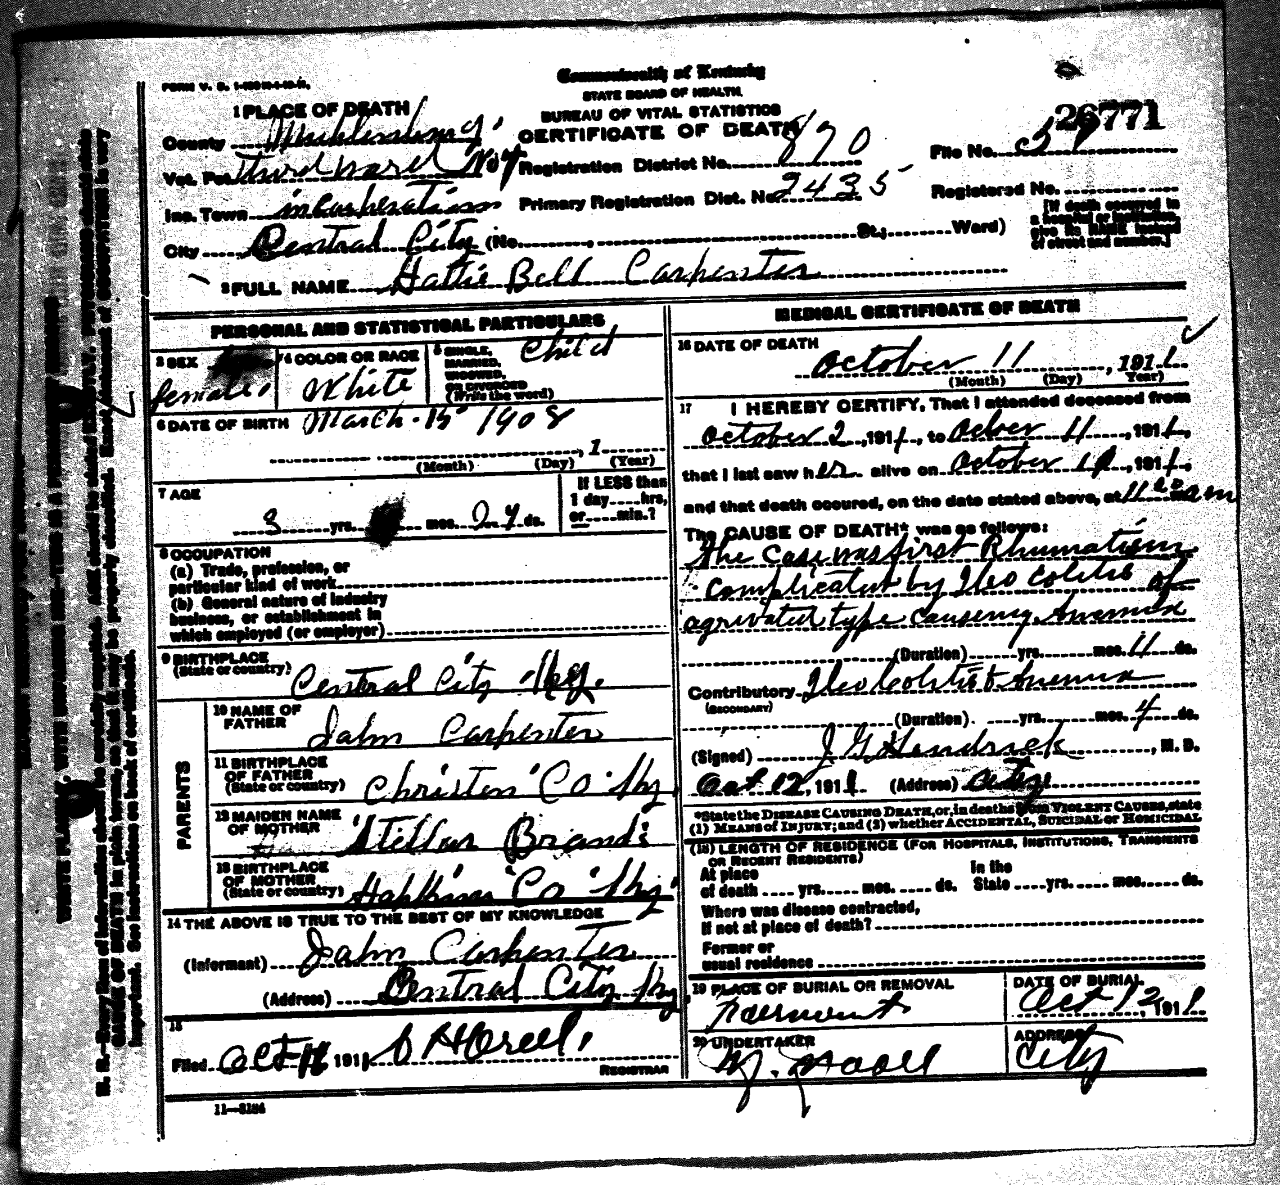 FORM V. S.
Commonwealth of Kentucky
STATE BOARD OF HEALTH.
BUREAU OF VITAL STATISTICS
CERTIFICATE OF DEATH
26771
1 PLACE OF DEATH
County Muhlenburg
Vot. Pct Third ward No 4 Registration District No. 870 File No. 39
Inc. Town incorporation Primary Registration Dist. No. 2435 Registered No.
City Central City (No. , St.; Ward)
[If death occurred in a hospital or institution, give its NAME instead of street and number.]
2 FULL NAME Hattie Bell Carpenter
PERSONAL AND STATISTICAL PARTICULARS
3 SEX female
4 COLOR OR RACE White
5 SINGLE, MARRIED, WIDOWED, OR DIVORCED (Write the word) Child
6 DATE OF BIRTH March 15 1908
, 1
(Month) (Day) (Year)
7 AGE
3 yrs. mos. 27 ds.
If LESS than 1 day hrs, or min.?
8 OCCUPATION
(a) Trade, profession, or
particular kind of work
(b) General nature of industry
business, or establishment in
which employed (or employer)
9 BIRTHPLACE
(State or country) Central City Ky.
PARENTS
10 NAME OF FATHER John Carpenter
11 BIRTHPLACE OF FATHER (State or country) Christen Co Ky
12 MAIDEN NAME OF MOTHER Stellar Brands
13 BIRTHPLACE OF MOTHER (State or country) Hopkins Co Ky
14 THE ABOVE IS TRUE TO THE BEST OF MY KNOWLEDGE
(Informant) John Carpenter
(Address) Central City Ky
15
Filed Oct 191
REGISTRAR
11—3184
MEDICAL CERTIFICATE OF DEATH
16 DATE OF DEATH
October 11, 1911
(Month) (Day) Year)
17 I HEREBY CERTIFY, That I attended deceased from
October 2, 1911, to Octber 11, 1911,
that I last saw her alive on October 1911,
and that death occured, on the date stated above, at 11 am
The CAUSE OF DEATH* was as follows:
The Case was first Rhumatism
complicated by Ileo Colitis of
agrivated type causeing Anemia
(Duration) yrs. mos. 11 ds.
Contributory Ileo Colitis & Anemia
(SECONDARY)
(Duration). yrs. mos. 4 ds.
(Signed) J G Hendrick, M. D.
Oct 12, 1911 (Address) City
*State the DISEASE CAUSING DEATH, or, in deaths from VIOLENT CAUSES, state
(1) MEANS of INJURY; and (2) whether ACCIDENTAL, SUICIDAL or HOMICIDAL
(18) LENGTH OF RESIDENCE (FOR HOSPITALS, INSTITUTIONS, TRANSIENTS
OR RECENT RESIDENTS)
At place In the
of death yrs. mos. ds. State yrs. mos. ds.
Where was disease contracted,
If not at place of death?
Former or
usual residence
19 PLACE OF BURIAL OR REMOVAL
DATE OF BURIAL
Oct 12, 1911
20 UNDERTAKER
ADDRESS
City
N. B.—Every item of information should be carefully supplied. AGE should be stated EXACTLY. PHYSICIANS should state
CAUSE OF DEATH in plain terms, so that it may be properly classified. Exact statement of OCCUPATION is very
important. See instructions on back of certificate.